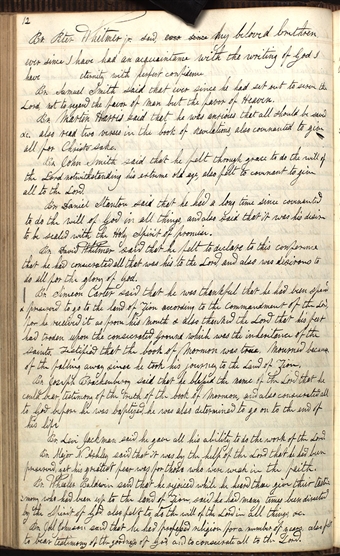 12
Br. Peter Whitmer jr. said, ever since my beloved brethren
ever since I have had an acquaintance with the writing of God I
have eternity with perfect confidence
Br. Samuel Smith said that ever since he had set out to serve the
Lord, not to regard the favor of man but the favor of Heaven.
Br. Martin Harris said that he was anxious that all should be saved
&c. also read two verses in the book of Revelations, also covenanted to give
all for Christ's sake.
Br. John Smith said that he felt though grace to do the will of
the Lord notwithstanding his extreme old age also felt to covenant to give
all to the Lord
Br. Daniel Stanton said that he had a long time since covenanted
to do the will of God in all things, and also said that it was his desire
to be sealed with the Holy Spirit of promise.
Br. David Whitmer said that he felt to declare to this conference
that he had consecrated all that was his to the Lord and also was desirous to
do all for the glory of God.
Br. Simeon Carter said that he was thankful that he had been spared
& preserved to go to the land of Zion according to the commandment of the
for he received it as from his mouth & also thanked the Lord that his feet
had trodden upon the consecrated ground which was the inheritance of the
Saints. Testified that the book of Mormon was true. Mourned because
of the falling away since he took his journey to the Land of Zion.
Br. Joseph Brackenbury said that he blessed the name of the Lord that he
could bear testimony of the truth of the book of Mormon, and also consecrated all
to God before he was baptized, he was also determined to go on to the end of
his life
Br. Levi Jackman said he gave all his ability to do the work of the Lord
Br. Major N. Ashley said that it was by the help of the Lord that he had been
preserved, yet his greatest fear was for those who were weak in the faith.
Br. Wheeler Baldwin said that he rejoiced while he heard them give their testi-
mony, who had been up to the land of Zion, said he had many times been directed
by the Spirit of God also felt to do the will of the Lord in all things &c.
Br. Johnson said that he had professed religion for a number of years, also felt
to bear testimony of the goodness of God and to consecrate all to the Lord.